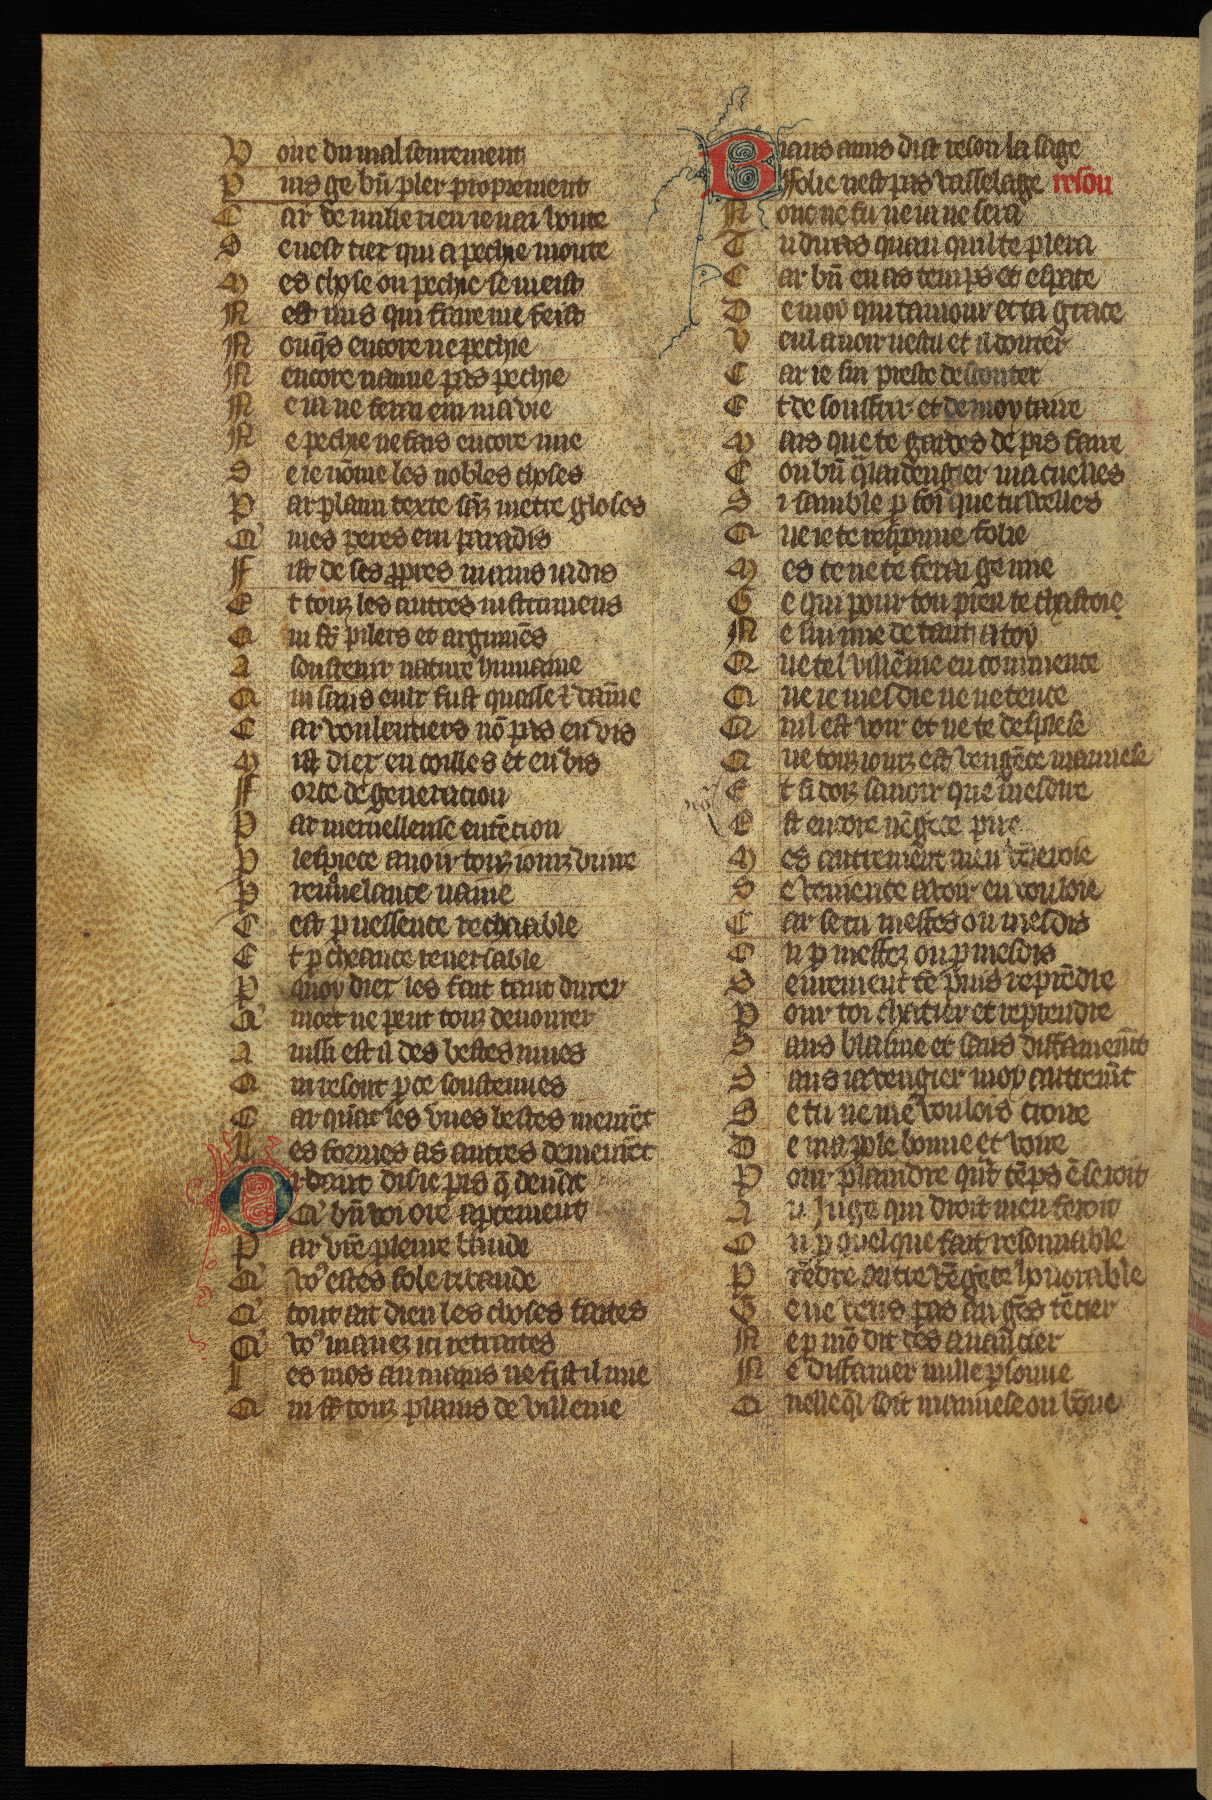 V oire du mal sentement
P uis ge bn̄ pler proprement
C ar de nulle rien ie nai honte
S e nest tier qui a pechie monte
M es chose ou pechie se meist
N est nus qui faire me feist
N onq̄s encore ne pechie
N encore naime pas pechie
N e ia ne ferai en ma vie
N e pechie ne fais encore mie
S e ie nōme les nobles choses
P ar plain texte sāz metre gloses
Q' mes peres em paradis
F ist de ses ppres mains iadis
E t touz les autres instrumens
Q ui st̄ pilers et argumēs
A soustenir nature humaine
Q ui sans eulz fust quasse et vaīne
C ar voulentiers nō pas enuis
M ist diex en coilles et en vis
F orce de generacion
P ar merueilleuse entēcion
P lespiece auoir touz iourz viuue
P renouelance naiue
C est p nessence rechaable
E t p cheance reuersable
P quoy diex les fait tant durer
Q' mort ne peut touz deuourer
A uissi est il des bestes mues
Q ui resont p ce soustenues
C ar quāt les vnes bestes meurēt
L es formes as autres demeurēt
Or vaut dis ie pis q̄ deuāt
Q' bn̄ voi ore apertement
P ar vrē pleine baude
Q' vo9 estes fole ribaude
Q' tout ait dieu les choses faites
Q' vo9 mauez ici retraites
L es mos au mains ne fist il mie
Q ui st̄ touz plains de villenie
Biaus amis dist reson la sage
Folie nest pas vasselage reson
N onc ne fu ne ia ne sera
T u diras quan quil te plera
C ar bn̄ en as temps et espace
D e moy qui tamour et ta grace
V eul auoir nestu et il douter
C ar ie sui preste descouter
E t de souffrir et de moy taire
M ais que te gardes de pis faire
C on bn̄ q̄ laidengier macuelles
S i samble p foi que tu veilles
Q ue ie te responne folie
M es ce ne te ferai ge mie
G e qui pour ton preu te chastoie
N e sui mie de tant a toy
Q ue tel villēnie encommence
Q ue ie mesdie ne ne tence
Q uil est voir et ne te desplese
Q ue touz iourz est vengēce mauuese
E t si doiz sauoir que mesdire
E st encore vēgece pire
M es autrement men vēieroie
S e venience auoir en vouloie
C ar se tu meffes ou mesdis
O u p meffez ou p mesdis
S eurement te puis reprēdre
P our toi chatier et reprendre
S ans blasme et sans diffamem̄t
S ans ia vengier moy autrem̄t
S e tu ne me vouloies croire
D e ma pole bonne et voire
P our plaindre qn̄t tēps ē seroit
A u Juge qui droit men feroit
O u p quelque fait resonnable
P rēdre autre vēgēce honorable
G e ne veus pas au gēs tēcier
N e p mō dit des auācier
N e diffamer nulle psonne
Q uelle q̄l soit mauuese ou bōne